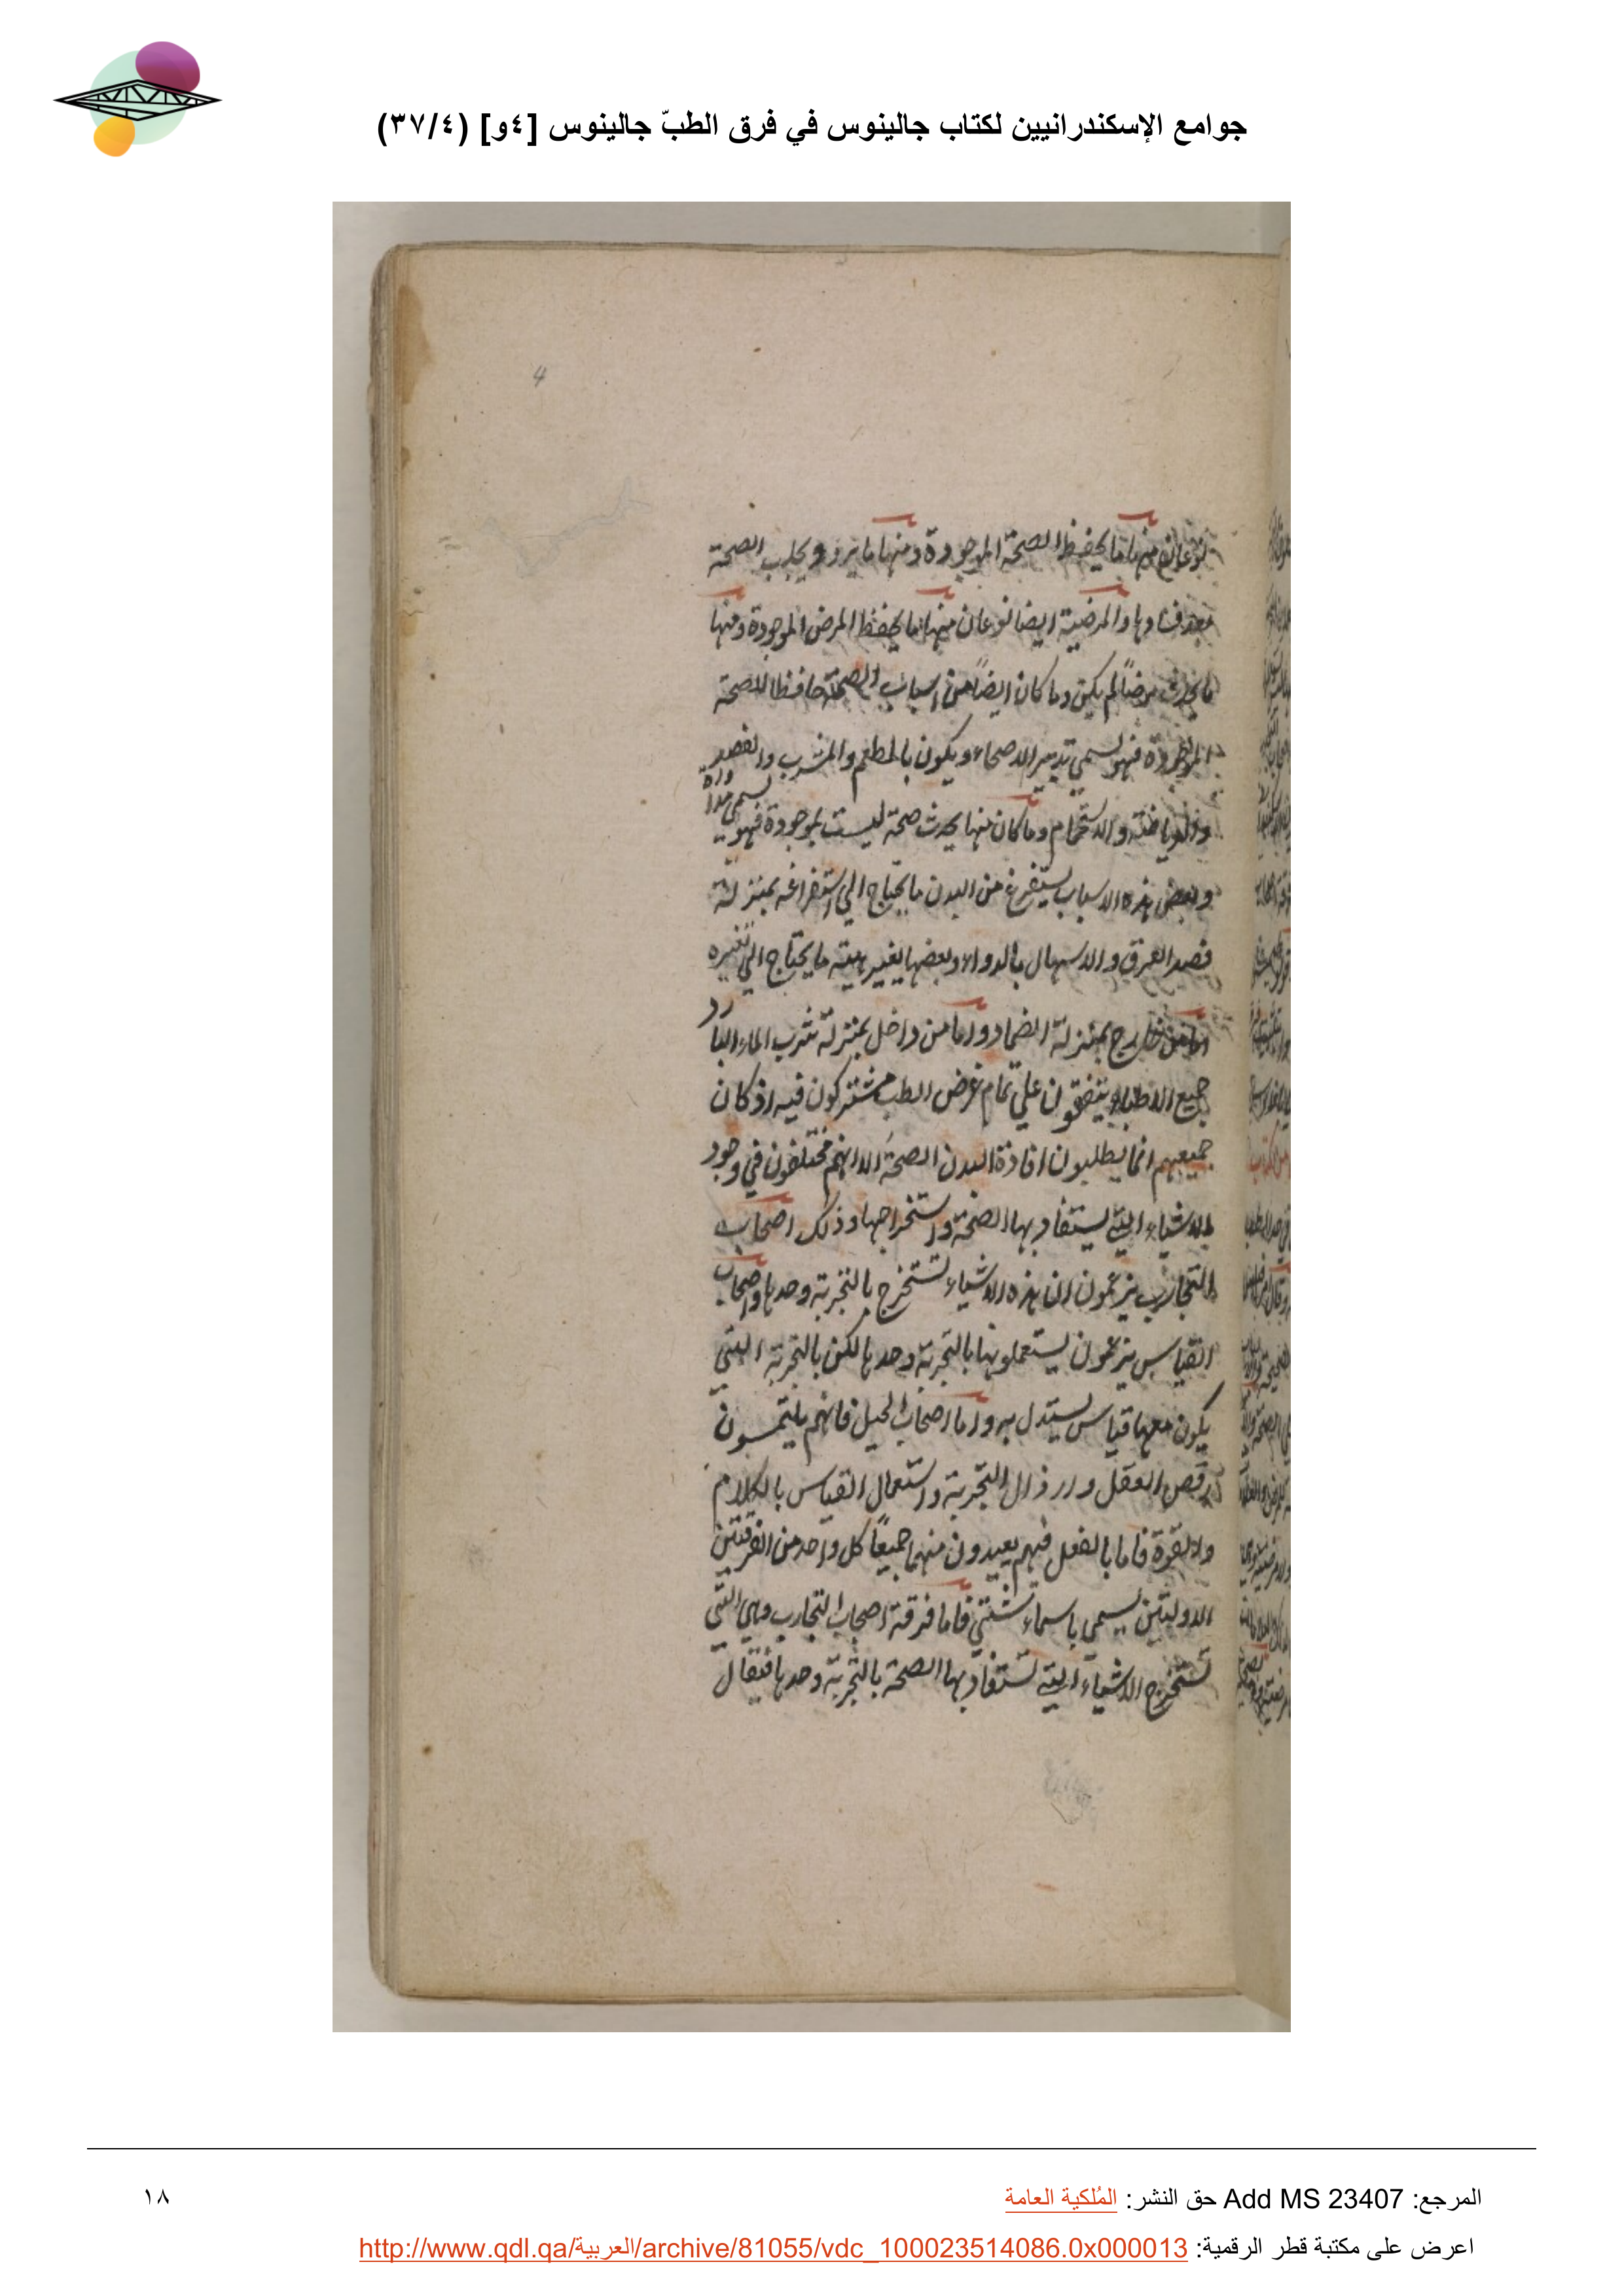 جوامع الإسكندرانيين لكتاب جالينوس في فرق الطبّ جالينوس [٤و] (٣٧/٤)
4
نوعان منها ما يحفظ الصحة الموجودة ومنها ما يرد ويجلب الصحة
بعد فسادها والمرضية ايضا نوعان منها ما يحفظ المرض الموجودة ومنها
ما يحدث مرضاً لم يكن وما كان ايضاً من اسباب الصحة حافظا للصحة
الموجودة فهو يسمي تدبير الاصحاء ويكون بالمطعم والمشرب والفصد
والرياضة والاستحمام وما كان منها يحدث صحة ليست بموجودة فهو يسمي مداواة
وبعض هذه الاسباب يستفرغ من البدن ما يحتاج الي استفراغه بمنزلة
فصد العرق والاسهال بالدواء وبعضها يغير هيئة ما يحتاج الي تغييره
اما من خارج بمنزلة الضماد واما من داخل بمنزلة شرب الماء البارد
جميع الاطباء يتفقون علي تمام غرض الطب مشتركون فيه اذ كان
جميعهم انما يطلبون افادة البدن الصحة الا انهم مختلفون في وجود
الاشياء التي يستفاد بها الصحة واستخراجها وذلك اصحاب
التجارب يزعمون ان هذه الاشياء تستخرج بالتجربة وحدها واصحاب
القياس يزعمون يستعملونها بالتجربة وحدها لكن بالتجربة التي
يكون معها قياس يستدل به واما اصحاب الحيل فانهم يلتمسون
رفض العقل وارذال التجربة واستعمال القياس بالكلام
والقوة فاما بالفعل فهم يعيدون منهما جميعاً كل واحد من الفرقتين
الاوليتين يسمي باسماء شتي فاما فرقة اصحاب التجارب وهي التي
تستخرج الاشياء التي تستفاد بها الصحة بالتجربة وحدها فيقال
المرجع: Add MS 23407 حق النشر: المُلكية العامة
١٨
اعرض على مكتبة قطر الرقمية: http://www.qdl.qa/العربية/archive/81055/vdc_100023514086.0x000013